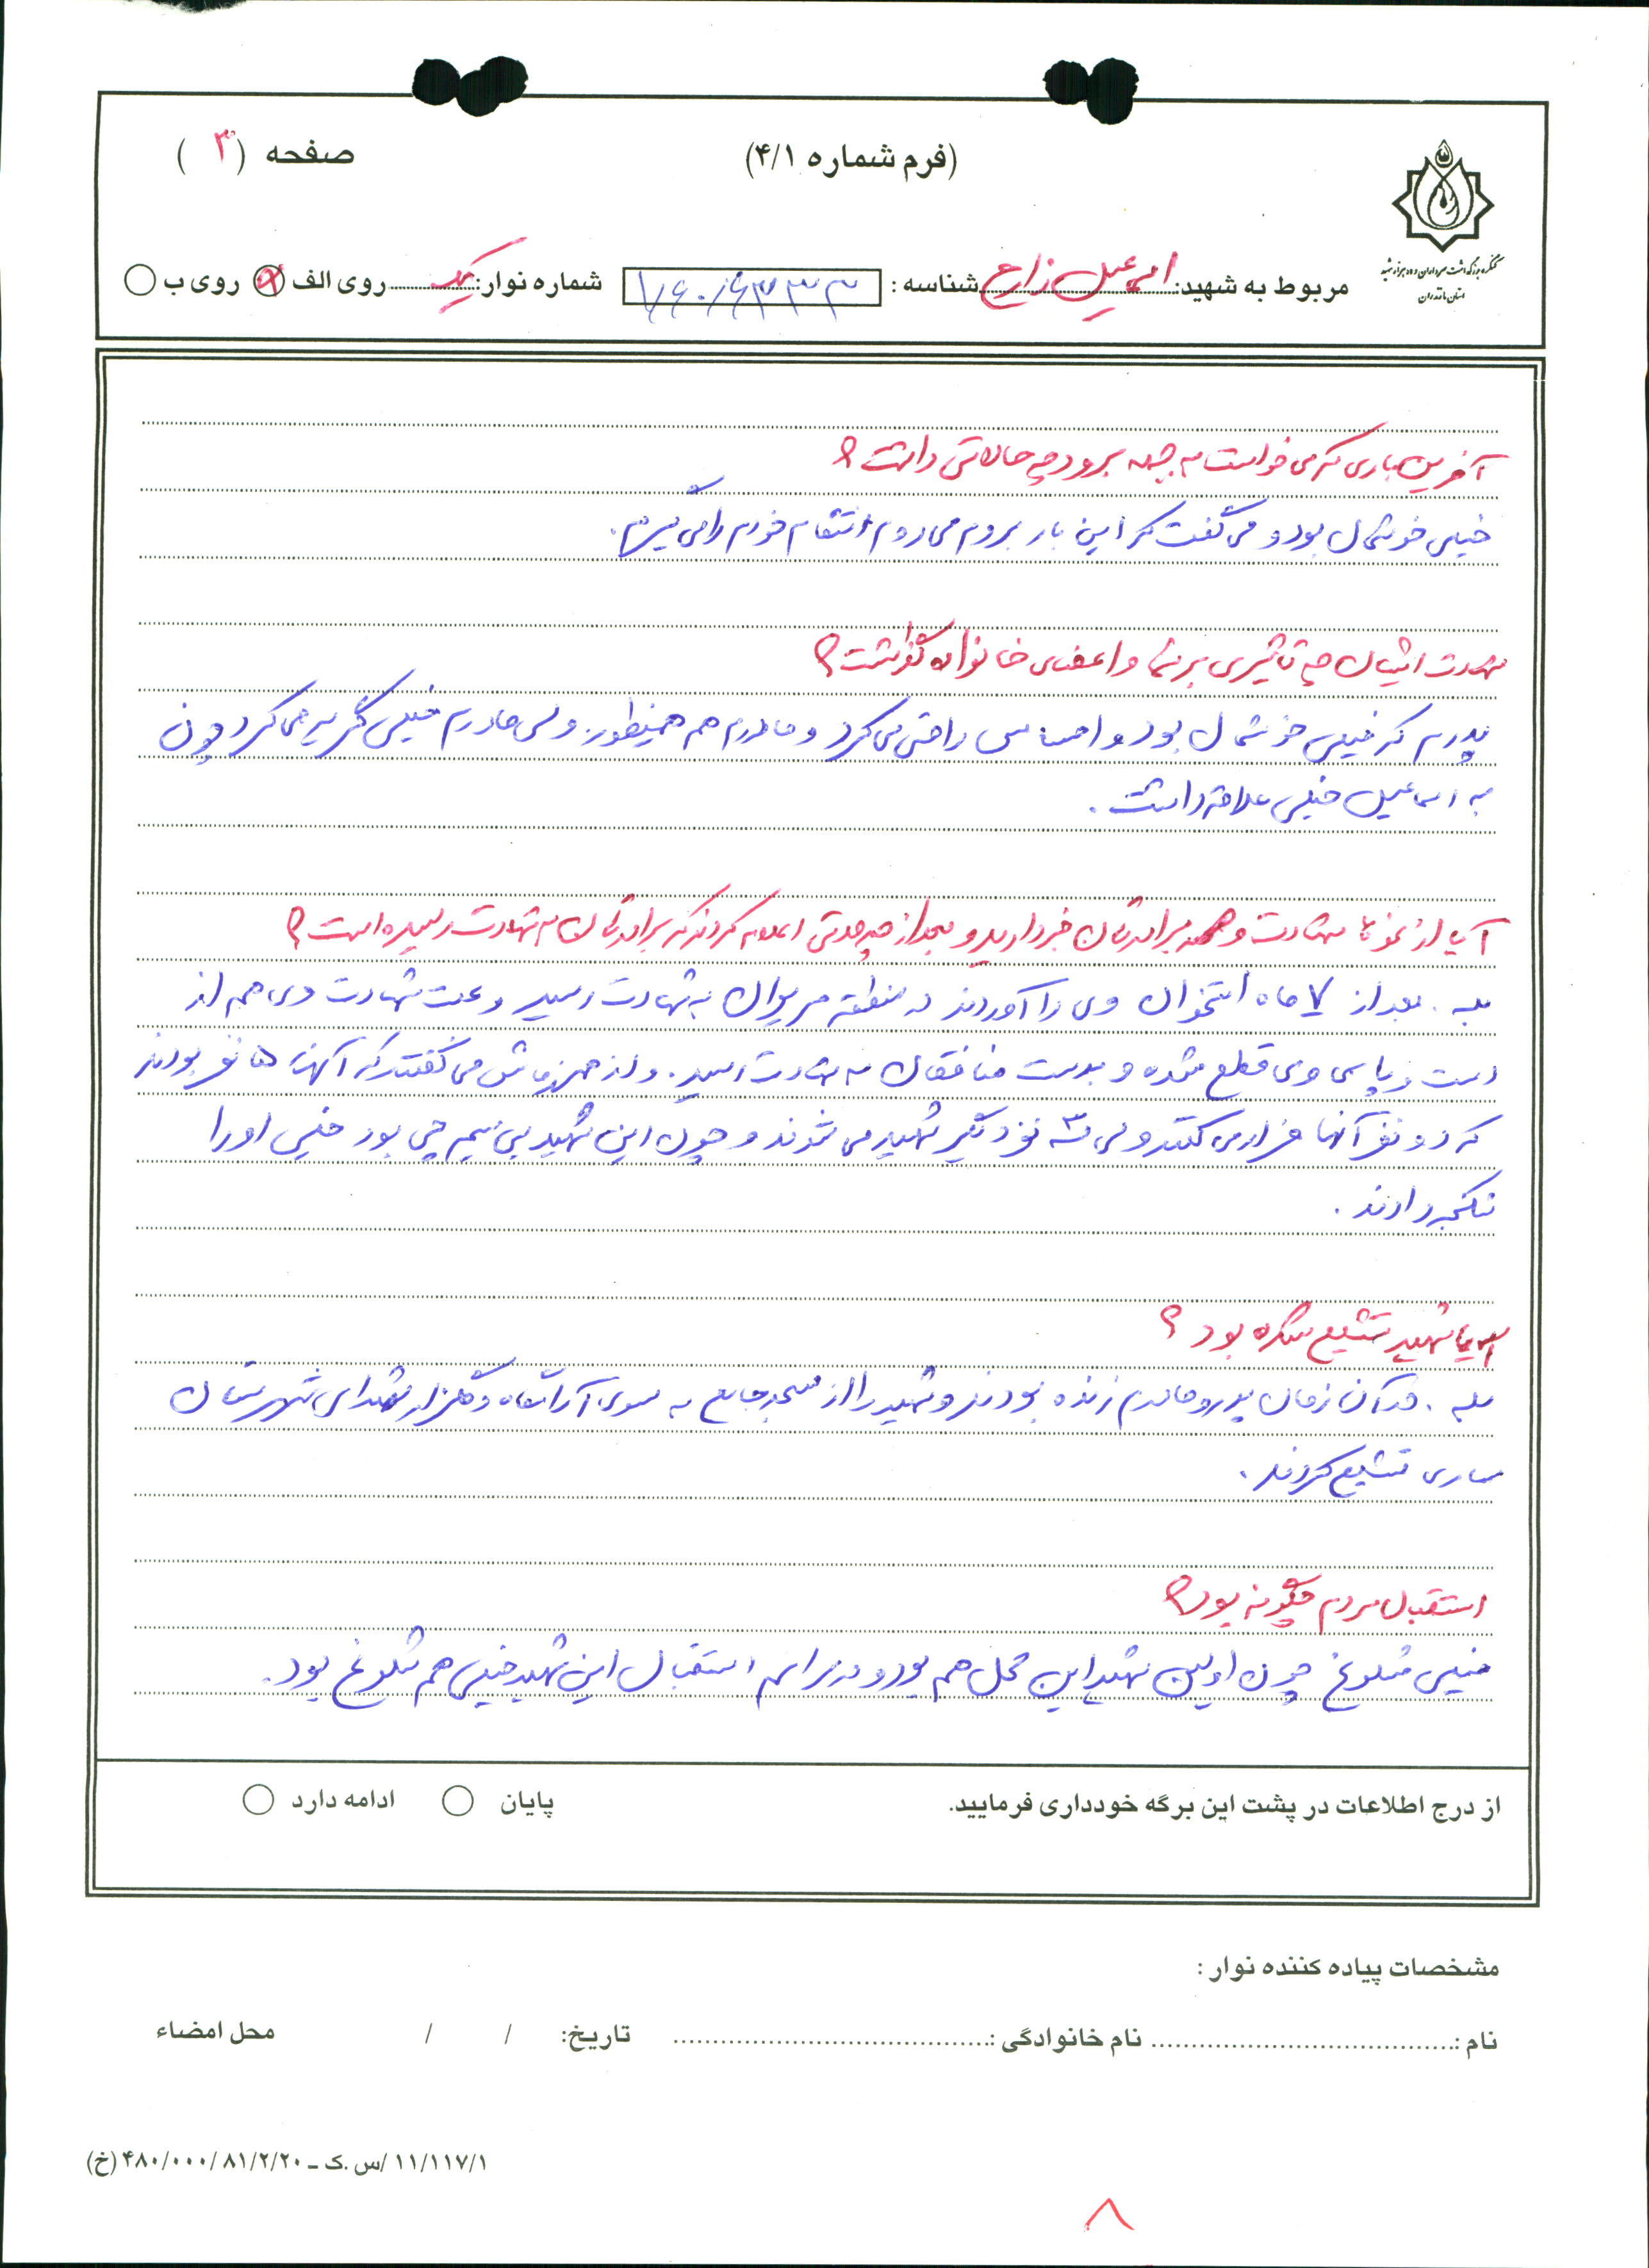 (فرم شماره ۴/۱)
صفحه (۳)
کنگره بزرگداشت سرداران و ده هزار شهید
استان مازندران
مربوط به شهید: اسماعیل زارع شناسه : شماره نوار: یک روی الف روی ب
آخرین باری که می خواست به جبهه برود چه حالاتی داشت؟
خیلی خوشحال بود و می گفت که این بار بروم می روم انتقام خودم را می گیرم.
شهادت ایشان چه تاثیری بر شما و اعضای خانواده گذاشت؟
پدرم که خیلی خوشحال بود و احساس راحتی می کرد و مادرم هم همینطور. ولی مادرم خیلی گریه می کرد چون
به اسماعیل خیلی علاقه داشت.
آیا از نحوه شهادت برادرتان خبر دارید و بعد از چه مدتی اعلام کردند که برادرتان به شهادت رسیده است؟
بله. بعد از ۷ ماه استخوان وی را آوردند در منطقه مریوان به شهادت رسید و علت شهادت وی هم از
دست و پای وی قطع شده و بدست منافقان به شهادت رسید. و از همرزمانش می گفتند که آنها ۵ نفر بودند
که دو نفر آنها فرار می کنند ولی سه نفر دیگر شهید می شوند و چون این شهید بی سیم چی بود خیلی او را
شکنجه دادند.
آیا شهید تشییع شده بود؟
بله. در آن زمان پدر و مادرم زنده بودند و شهید را از مسجد جامع به سوی آرامگاه و گلزار شهدای شهرستان
ساری تشییع کردند.
استقبال مردم چگونه بود؟
خیلی شلوغ چون اولین شهید این محل هم بود و در مراسم استقبال این شهید خیلی هم شلوغ بود.
از درج اطلاعات در پشت این برگه خودداری فرمایید. پایان ادامه دارد
مشخصات پیاده کننده نوار :
نام : نام خانوادگی : تاریخ: / / محل امضاء
۱۱/۱۱۷/۱ /س.ک ـ ۴۸۰/۰۰۰/۸۱/۲/۲۰ (خ)
۸